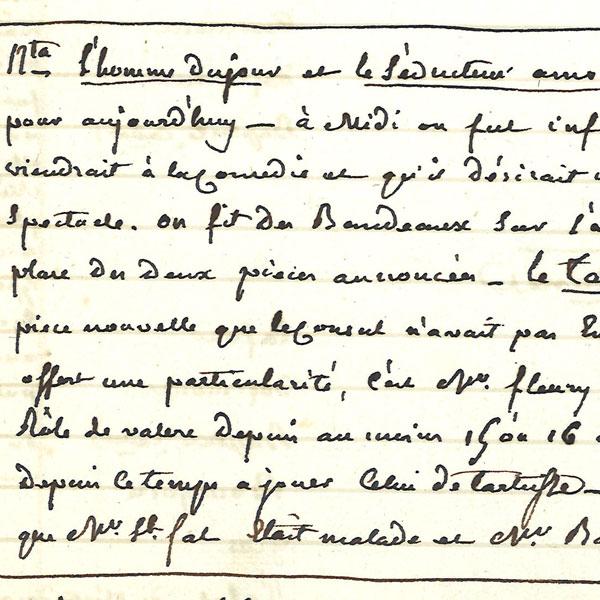 Nta l'homme du jour et le Séducteur
pour aujourd'huy — à Midi on fut
viendrait à la Comedie et qu'il désirait
Spectacle. on fit des Bandeaux sur
place des deux pièces annoncées — le
pièce nouvelle que le Consul n'avait pas
offert une particularité, C'est Mr. fleury
Rôle de valere depuis au moins 15 ou 16
depuis ce temps a jouer Celui de tartuffe —
que Mr. St. fal Etait malade et Mr.